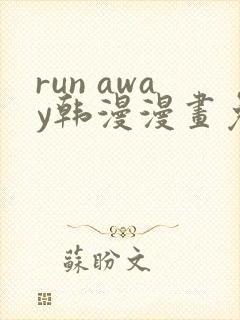 run awa
y韩漫漫畫免
蘇盼文